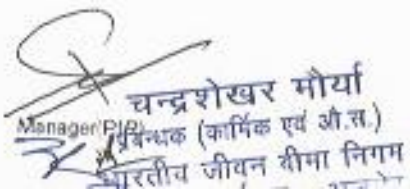 चन्द्रशेखर मौर्या
Manager(P&IR)
प्रबन्धक (कार्मिक एवं औ.स.)
भारतीय जीवन बीमा निगम